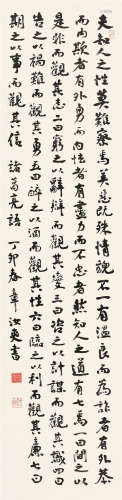 夫知人之性莫難察焉美惡既殊情貌不一有溫良而為詐者有外恭
而内欺者有外勇而内怯者有盡力而不忠者然知人之道有七焉一曰間之以
是非而觀其志二曰窮之以辭辯而觀其變三曰咨之以計謀而觀其識四曰
告之以禍難而觀其勇五曰醉之以酒而觀其性六曰臨之以利而觀其廉七曰
期之以事而觀其信 諸葛亮語 丁卯春章汝奭書